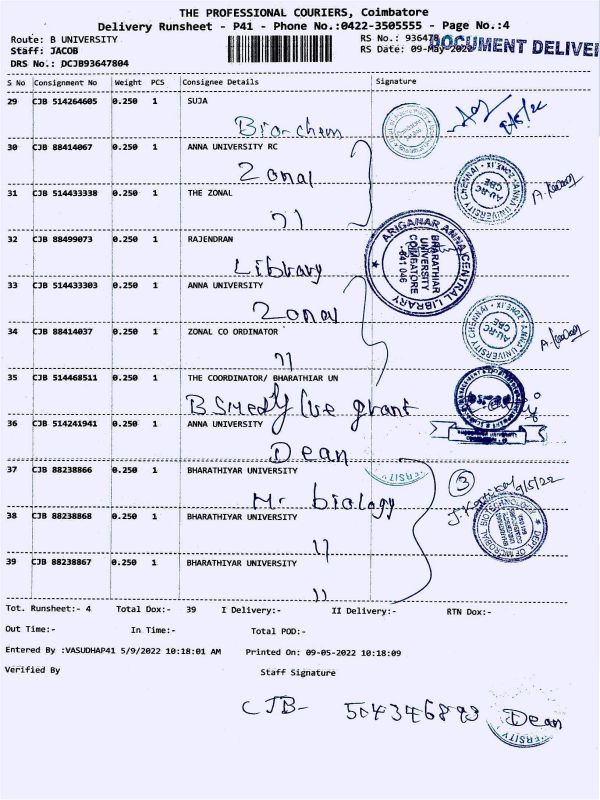 THE PROFESSIONAL COURIERS, Coimbatore
Delivery Runsheet - P41 - Phone No.:0422-3505555 - Page No.:4
Route: B UNIVERSITY
RS No.: 93647
DOCUMENT DELIVE
Staff: JACOB
RS Date: 09-May-2022
DRS No.: DCJB93647804
S No Consignment No Weight PCS Consignee Details Signature
29 CJB 514264605 0.250 1 SUJA
Bio-chem
30 CJB 88414067 0.250 1 ANNA UNIVERSITY RC
Zonal
31 CJB 514433338 0.250 1 THE ZONAL
32 CJB 88499073 0.250 1 RAJENDRAN
Library
ARIGNAR ANNA CENTRAL LIBRARY
BHARATHIAR
UNIVERSITY
COIMBATORE
641 046
33 CJB 514433303 0.250 1 ANNA UNIVERSITY
Zonal
ANNA UNIVERSITY CHENNAI
AU-RC
CBE
34 CJB 88414037 0.250 1 ZONAL CO ORDINATOR
35 CJB 514468511 0.250 1 THE COORDINATOR/ BHARATHIAR UN
36 CJB 514241941 0.250 1 ANNA UNIVERSITY
Dean
37 CJB 88238866 0.250 1 BHARATHIYAR UNIVERSITY
Mr biology
3
9/5/22
DEPT OF MICROBIAL BIOTECHNOLOGY
38 CJB 88238868 0.250 1 BHARATHIYAR UNIVERSITY
39 CJB 88238867 0.250 1 BHARATHIYAR UNIVERSITY
Tot. Runsheet:- 4 Total Dox:- 39 I Delivery:- II Delivery:- RTN Dox:-
Out Time:- In Time:- Total POD:-
Entered By :VASUDHAP41 5/9/2022 10:18:01 AM Printed On: 09-05-2022 10:18:09
Verified By Staff Signature
CJB- 504346893 Dean